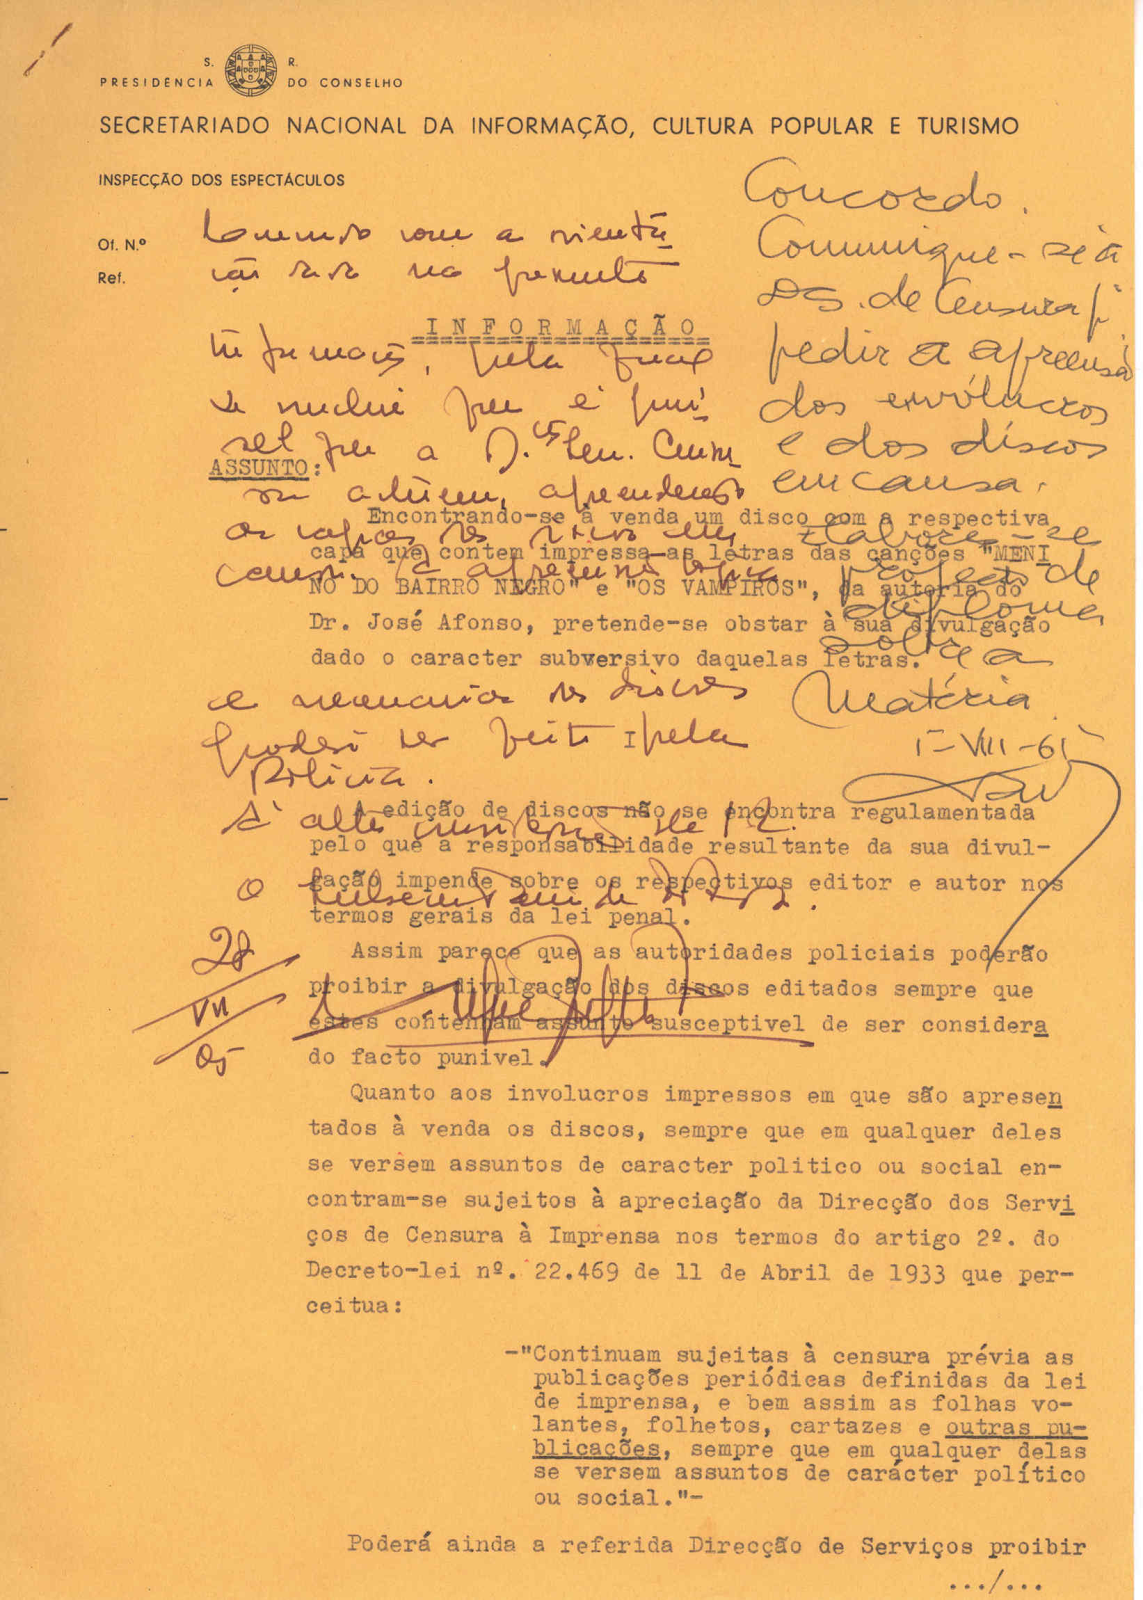 S. R.
PRESIDÊNCIA DO CONSELHO
SECRETARIADO NACIONAL DA INFORMAÇÃO, CULTURA POPULAR E TURISMO
INSPECÇÃO DOS ESPECTÁCULOS
Of. N.º
Ref.
Concordo.
Comunique-se à
DS. de Censura p/
pedir a apreensão
dos envólucros
e dos discos
em causa.
Elabore-se
projecto de
diploma
sobre a
Matéria
1-VIII-65
com a orienta
ção
no presente
INFORMAÇÃO
informação, pela qual
se conclui que é
que a
apreendendo
os
A apreensão
ASSUNTO:
Encontrando-se à venda um disco com a respectiva
capa que contem impressa-as letras das canções "MENI
NO DO BAIRRO NEGRO" e "OS VAMPIROS", da autoria do
Dr. José Afonso, pretende-se obstar à sua divulgação
dado o caracter subversivo daquelas letras.
dos discos
poderá ser feita pela
Polícia.
À
A edição de discos não se encontra regulamentada
pelo que a responsabilidade resultante da sua divul-
gação impende sobre os respectivos editor e autor nos
termos gerais da lei penal.
28
VII
65
Assim parece que as autoridades policiais poderão
proibir a divulgação dos discos editados sempre que
estes contenham assunto susceptivel de ser considera
do facto punivel.
Quanto aos involucros impressos em que são apresen
tados à venda os discos, sempre que em qualquer deles
se versem assuntos de caracter politico ou social en-
contram-se sujeitos à apreciação da Direcção dos Servi
ços de Censura à Imprensa nos termos do artigo 2º. do
Decreto-lei nº. 22.469 de 11 de Abril de 1933 que per-
ceitua:
-"Continuam sujeitas à censura prévia as
publicações periódicas definidas da lei
de imprensa, e bem assim as folhas vo-
lantes, folhetos, cartazes e outras pu-
blicações, sempre que em qualquer delas
se versem assuntos de carácter político
ou social."-
Poderá ainda a referida Direcção de Serviços proibir
.../...